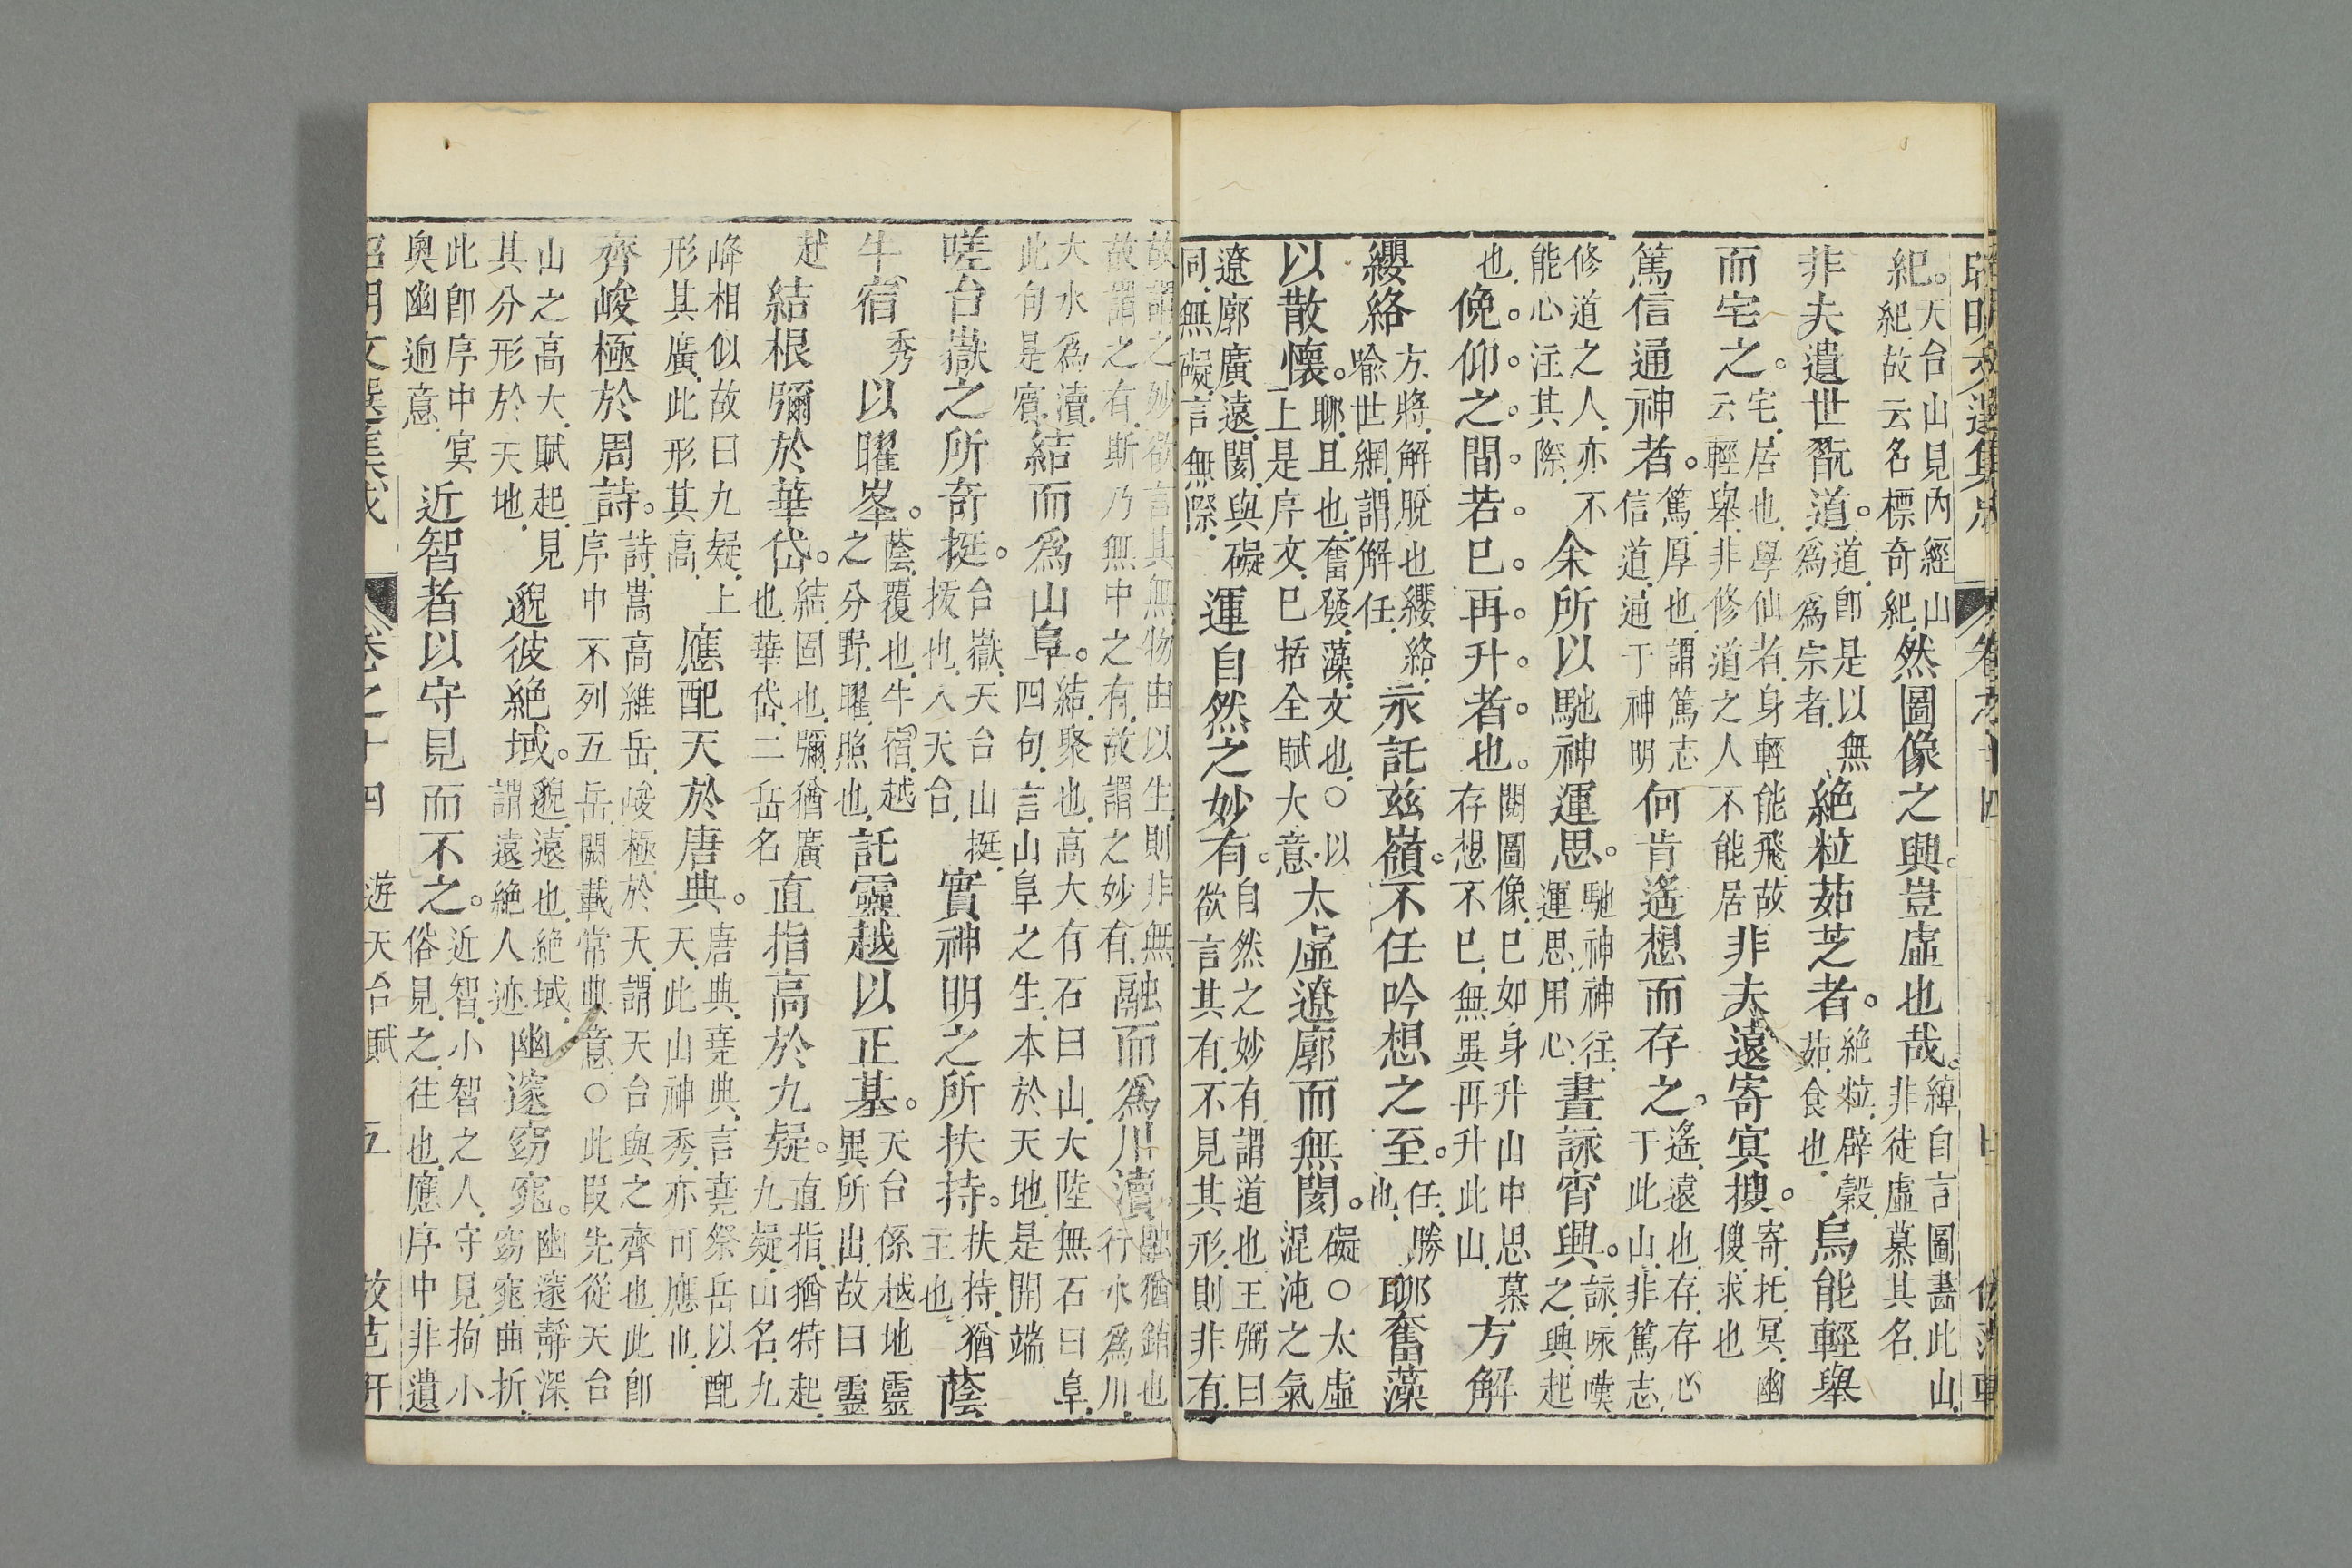 昭明文選集成 卷之十四
紀。天台山見內經山紀.故云名標奇紀.然圖像之興。豈虛也哉。綽自言圖畵此山.非徒虛慕其名.
非夫遺世翫道。道.即是以無爲爲宗者.絶粒茹芝者。絶粒.辟穀.茹.食也.烏能輕舉
而宅之。宅.居也.學仙者.身輕能飛.故云輕舉.非修道之人不能居.非夫遠寄冥搜。寄.托.冥.幽.搜.求也
篤信通神者。篤.厚也.謂篤志信道.通于神明何肯遙想而存之。遙.遠也.存.存心于此山.非篤志.
修道之人.亦不能心注其際.余所以馳神運思。馳神神往.運思用心.晝詠宵興。詠.咏嘆之.興.起
也.俛。仰。之。間。若。已。再。升。者。也。閱圖像.已如身升山中.思慕存想不已.無異再升此山.方解
纓絡方.將.解.脫也.纓絡.喻世網.謂解任.永託茲嶺。不任吟想之至。任.勝也.聊奮藻
以散懷。聊.且也.奮.發.藻.文也.○以上是序文.已括全賦大意.太虛遼廓而無閡。礙○太虛混沌之氣
遼廓廣遠.閡與礙同.無礙.言無際.運自然之妙有。自然之妙有.謂道也王弼曰欲言其有.不見其形.則非有.
故謂之妙.欲言其無.物由以生.則非無.故謂之有.斯乃無中之有.故謂之妙有.融而爲川瀆融猶銷也行水爲川.
大水爲瀆.此句是賓.結而爲山阜。結.聚也.高大有石曰山.大陸無石曰阜.四句.言山阜之生.本於天地.是開端.
嗟台嶽之所奇挺。台嶽.天台山.挺.拔也.入天台.實神明之所扶持。扶持.猶主也.蔭
牛宿秀以曜峯。蔭.覆也.牛宿.越之分野.曜.照也.託靈越以正基。天台係越地靈異所出.故曰靈
越結根彌於華岱。結.固也.彌.猶廣也.華岱.二岳名直指高於九疑。直指.猶特起.九疑.山名.九
峰相似故曰九疑.上形其廣.此形其高.應配天於唐典。唐典.堯典.言堯祭岳以配天.此山神秀.亦可應也.
齊峻極於周詩。詩.嵩高維岳.峻極於天.謂天台與之齊也.此卽序中不列五岳.闕載常典意.○此段先從天台
山之高大.賦起.見其分形於天地.邈彼絶域。邈.遠也.絶域.謂遠絶人迹.幽邃窈窕。幽邃靜深.窈窕曲折.
此卽序中冥奧幽迥意.近智者以守見而不之。近智.小智之人.守見.拘小俗見.之.往也.應序中非遺
昭明文選集成 卷之十四 遊天台賦 五